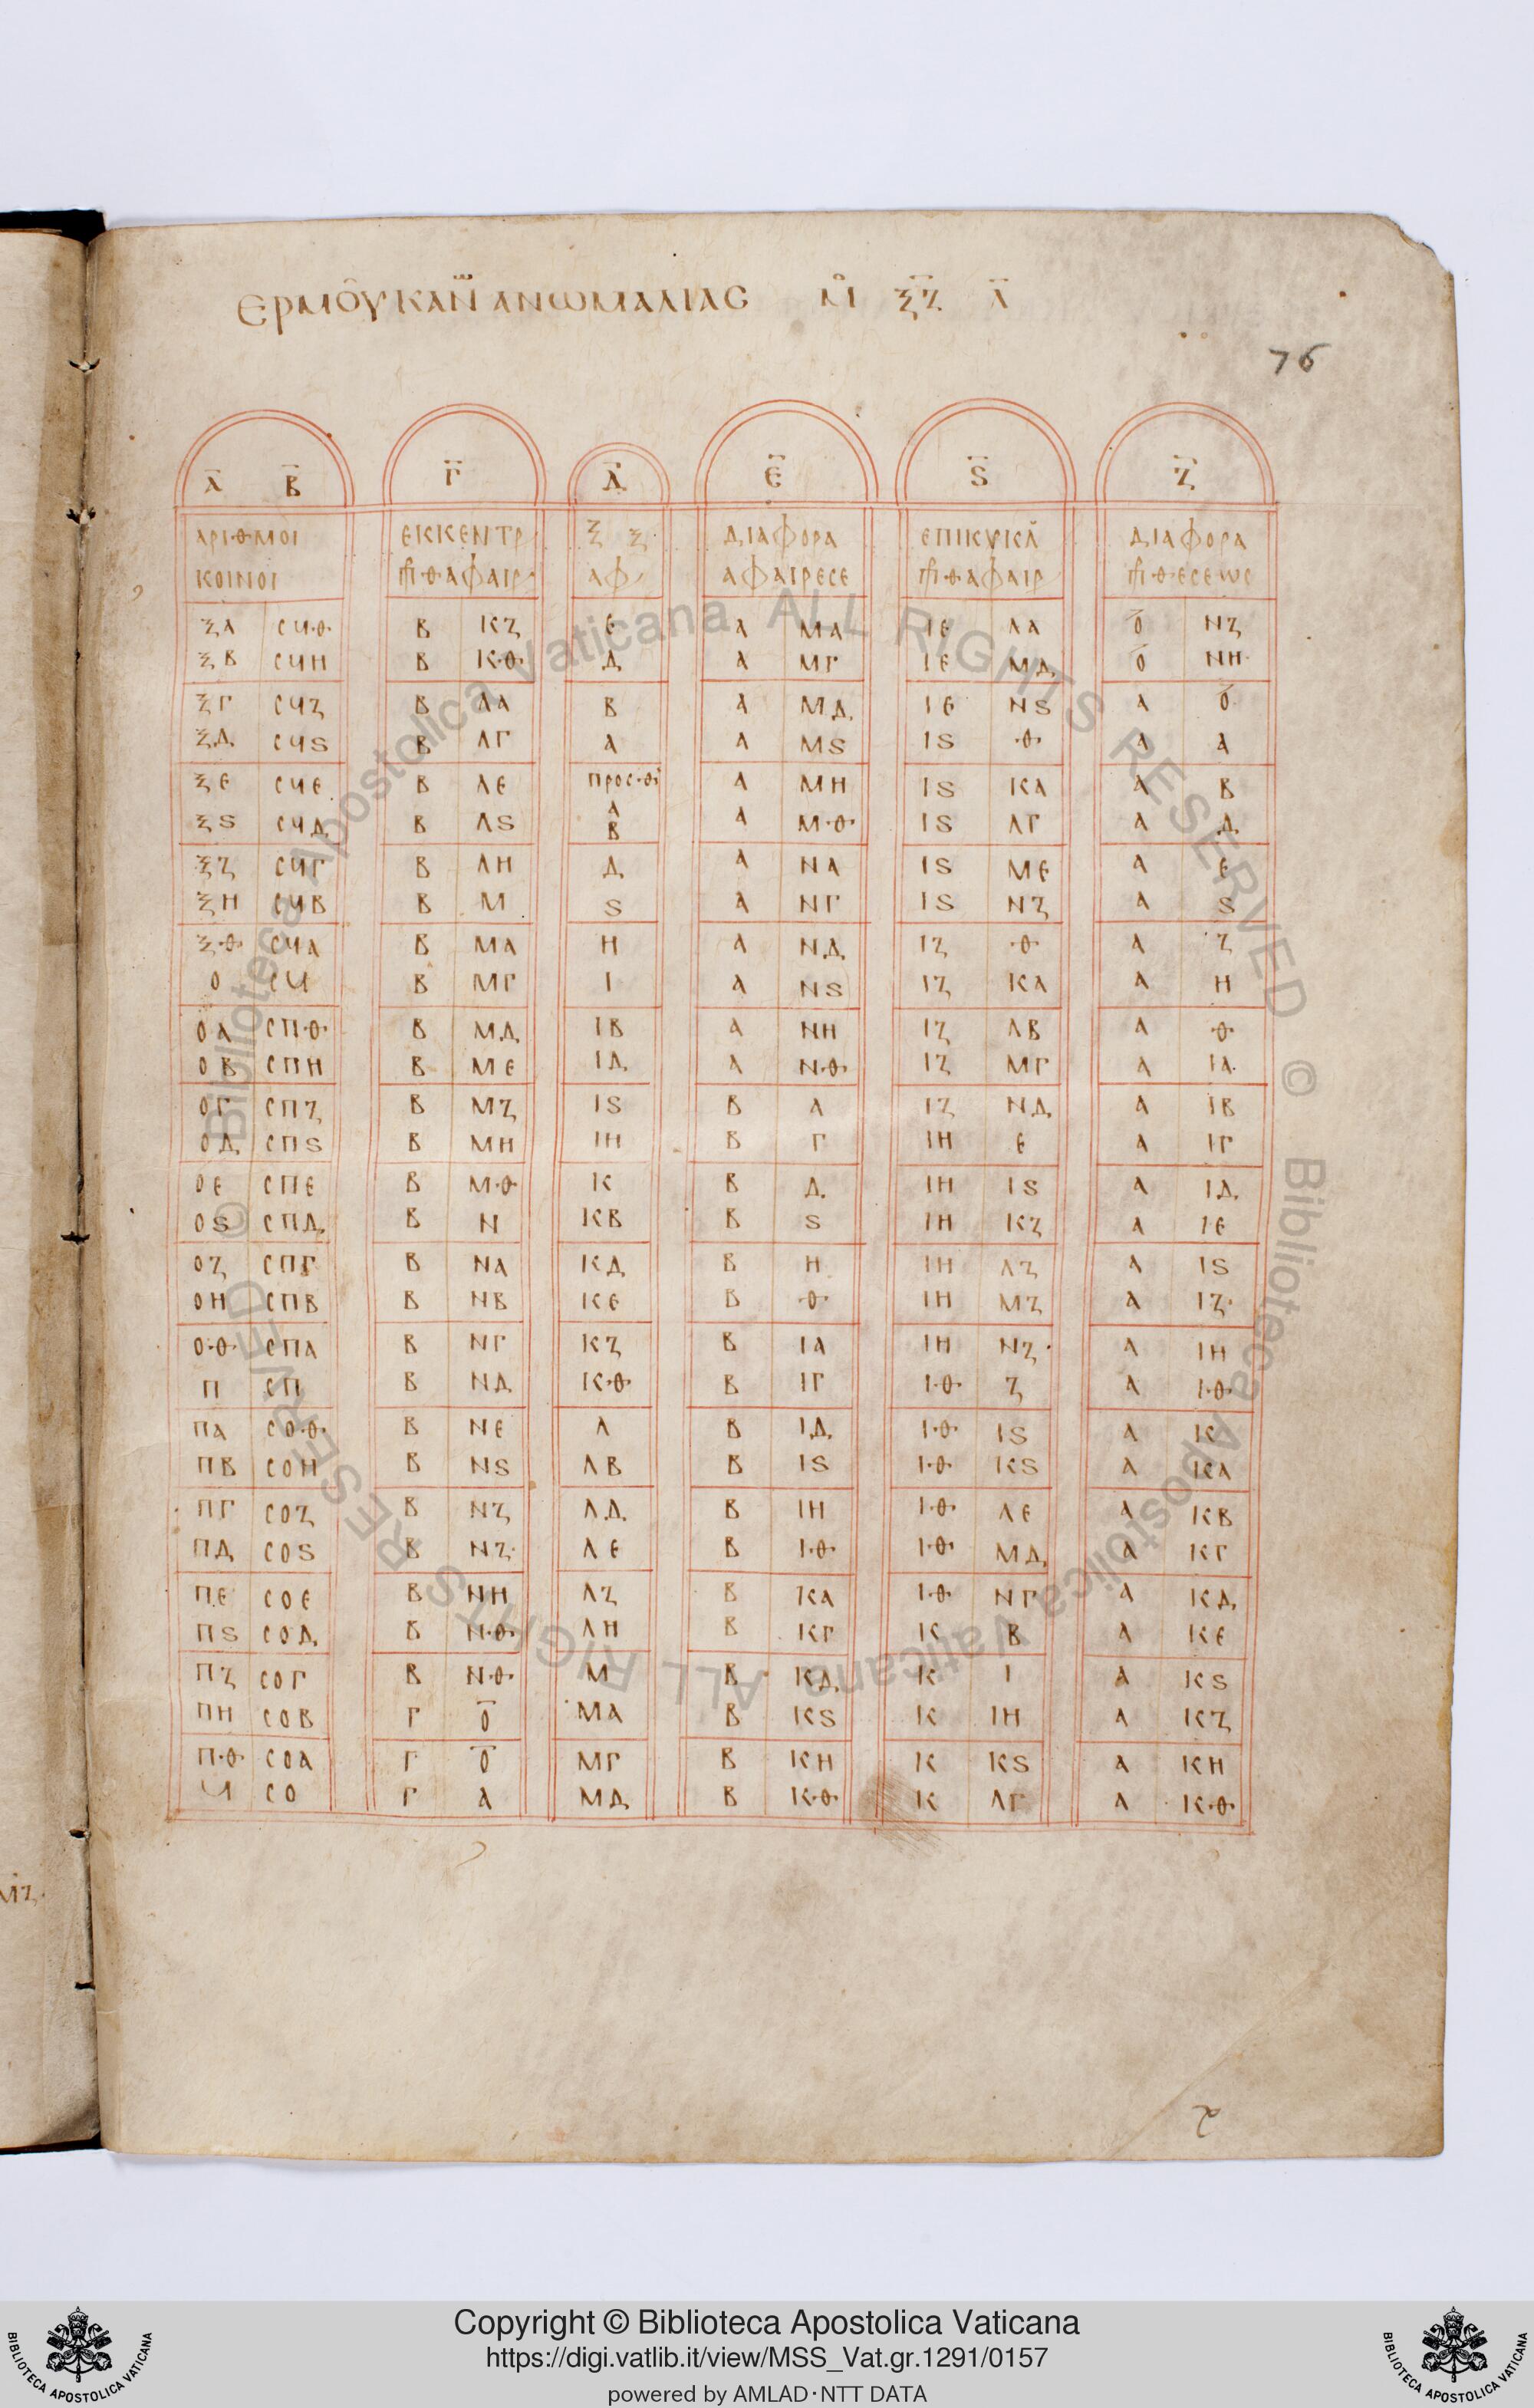 ΕΡΜΟΥ ΚΑΝ ΑΝΩΜΑΛΙΑϹ ΞΖ Λ
76
Α Β Γ Δ Ε Ϛ Ζ
ΑΡΙΘΜΟΙ ΕΚΚΕΝΤΡ Ξ Ξ ΔΙΑΦΟΡΑ ΕΠΙΚΥΚΛ ΔΙΑΦΟΡΑ
ΚΟΙΝΟΙ ΘΑΦΑΙΡ ΑΦ ΑΦΑΙΡΕϹΕ ΘΑΦΑΙΡ ΘΕϹΕΩϹ
ΞΑ ϹϞΘ Β ΚΖ Ε Α ΜΑ ΙΕ ΛΑ Ο ΝΖ
ΞΒ ϹϞΗ Β ΚΘ Δ Α ΜΓ ΙΕ ΜΔ Ο ΝΗ
ΞΓ ϹϞΖ Β ΛΑ Β Α ΜΔ ΙΕ ΝϚ Α Ο
ΞΔ ϹϞϚ Β ΛΓ Α Α ΜϚ ΙϚ Θ Α Α
ΞΕ ϹϞΕ Β ΛΕ ΠΡΟϹΘ Α Α ΜΗ ΙϚ ΚΑ Α Β
ΞϚ ϹϞΔ Β ΛϚ Β Α ΜΘ ΙϚ ΛΓ Α Δ
ΞΖ ϹϞΓ Β ΛΗ Δ Α ΝΑ ΙϚ ΜΕ Α Ε
ΞΗ ϹϞΒ Β Μ Ϛ Α ΝΓ ΙϚ ΝΖ Α Ϛ
ΞΘ ϹϞΑ Β ΜΑ Η Α ΝΔ ΙΖ Θ Α Ζ
Ο ϹϞ Β ΜΓ Ι Α ΝϚ ΙΖ ΚΑ Α Η
ΟΑ ϹΠΘ Β ΜΔ ΙΒ Α ΝΗ ΙΖ ΛΒ Α Θ
ΟΒ ϹΠΗ Β ΜΕ ΙΔ Α ΝΘ ΙΖ ΜΓ Α ΙΑ
ΟΓ ϹΠΖ Β ΜΖ ΙϚ Β Α ΙΖ ΝΔ Α ΙΒ
ΟΔ ϹΠϚ Β ΜΗ ΙΗ Β Γ ΙΗ Ε Α ΙΓ
ΟΕ ϹΠΕ Β ΜΘ Κ Β Δ ΙΗ ΙϚ Α ΙΔ
ΟϚ ϹΠΔ Β Ν ΚΒ Β Ϛ ΙΗ ΚΖ Α ΙΕ
ΟΖ ϹΠΓ Β ΝΑ ΚΔ Β Η ΙΗ ΛΖ Α ΙϚ
ΟΗ ϹΠΒ Β ΝΒ ΚΕ Β Θ ΙΗ ΜΖ Α ΙΖ
ΟΘ ϹΠΑ Β ΝΓ ΚΖ Β ΙΑ ΙΗ ΝΖ Α ΙΗ
Π ϹΠ Β ΝΔ ΚΘ Β ΙΓ ΙΘ Ζ Α ΙΘ
ΠΑ ϹΟΘ Β ΝΕ Λ Β ΙΔ ΙΘ ΙϚ Α Κ
ΠΒ ϹΟΗ Β ΝϚ ΛΒ Β ΙϚ ΙΘ ΚϚ Α ΚΑ
ΠΓ ϹΟΖ Β ΝΖ ΛΔ Β ΙΗ ΙΘ ΛΕ Α ΚΒ
ΠΔ ϹΟϚ Β ΝΖ ΛΕ Β ΙΘ ΙΘ ΜΔ Α ΚΓ
ΠΕ ϹΟΕ Β ΝΗ ΛΖ Β ΚΑ ΙΘ ΝΓ Α ΚΔ
ΠϚ ϹΟΔ Β ΝΘ ΛΗ Β ΚΓ Κ Β Α ΚΕ
ΠΖ ϹΟΓ Β ΝΘ Μ Β ΚΔ Κ Ι Α ΚϚ
ΠΗ ϹΟΒ Γ Ο ΜΑ Β ΚϚ Κ ΙΗ Α ΚΖ
ΠΘ ϹΟΑ Γ Ο ΜΓ Β ΚΗ Κ ΚϚ Α ΚΗ
Ϟ ϹΟ Γ Α ΜΔ Β ΚΘ Κ ΛΓ Α ΚΘ
ΜΖ
© Biblioteca Apostolica Vaticana ALL RIGHTS RESERVED © Biblioteca Apostolica Vaticana ALL RIGHTS RESERVED
Copyright © Biblioteca Apostolica Vaticana
https://digi.vatlib.it/view/MSS_Vat.gr.1291/0157
powered by AMLAD·NTT DATA
BIBLIOTECA APOSTOLICA VATICANA
BIBLIOTECA APOSTOLICA VATICANA